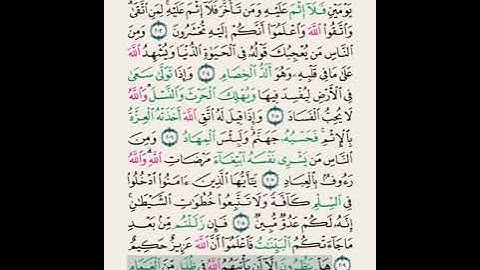 يَوْمَيْنِ فَلَآ إِثْمَ عَلَيْهِ وَمَن تَأَخَّرَ فَلَآ إِثْمَ عَلَيْهِ ۚ لِمَنِ ٱتَّقَىٰ ۗ
وَٱتَّقُوا۟ ٱللَّهَ وَٱعْلَمُوٓا۟ أَنَّكُمْ إِلَيْهِ تُحْشَرُونَ ﴿٢٠٣﴾ وَمِنَ
ٱلنَّاسِ مَن يُعْجِبُكَ قَوْلُهُۥ فِى ٱلْحَيَوٰةِ ٱلدُّنْيَا وَيُشْهِدُ ٱللَّهَ
عَلَىٰ مَا فِى قَلْبِهِۦ وَهُوَ أَلَدُّ ٱلْخِصَامِ ﴿٢٠٤﴾ وَإِذَا تَوَلَّىٰ سَعَىٰ
فِى ٱلْأَرْضِ لِيُفْسِدَ فِيهَا وَيُهْلِكَ ٱلْحَرْثَ وَٱلنَّسْلَ ۗ وَٱللَّهُ
لَا يُحِبُّ ٱلْفَسَادَ ﴿٢٠٥﴾ وَإِذَا قِيلَ لَهُ ٱتَّقِ ٱللَّهَ أَخَذَتْهُ ٱلْعِزَّةُ
بِٱلْإِثْمِ ۚ فَحَسْبُهُۥ جَهَنَّمُ ۚ وَلَبِئْسَ ٱلْمِهَادُ ﴿٢٠٦﴾ وَمِنَ
ٱلنَّاسِ مَن يَشْرِى نَفْسَهُ ٱبْتِغَآءَ مَرْضَاتِ ٱللَّهِ ۗ وَٱللَّهُ
رَءُوفٌۢ بِٱلْعِبَادِ ﴿٢٠٧﴾ يَٰٓأَيُّهَا ٱلَّذِينَ ءَامَنُوا۟ ٱدْخُلُوا۟
فِى ٱلسِّلْمِ كَآفَّةً وَلَا تَتَّبِعُوا۟ خُطُوَٰتِ ٱلشَّيْطَٰنِ ۚ
إِنَّهُۥ لَكُمْ عَدُوٌّ مُّبِينٌ ﴿٢٠٨﴾ فَإِن زَلَلْتُم مِّنۢ بَعْدِ
مَا جَآءَتْكُمُ ٱلْبَيِّنَٰتُ فَٱعْلَمُوٓا۟ أَنَّ ٱللَّهَ عَزِيزٌ حَكِيمٌ
﴿٢٠٩﴾ هَلْ يَنظُرُونَ إِلَّآ أَن يَأْتِيَهُمُ ٱللَّهُ فِى ظُلَلٍ مِّنَ ٱلْغَمَامِ